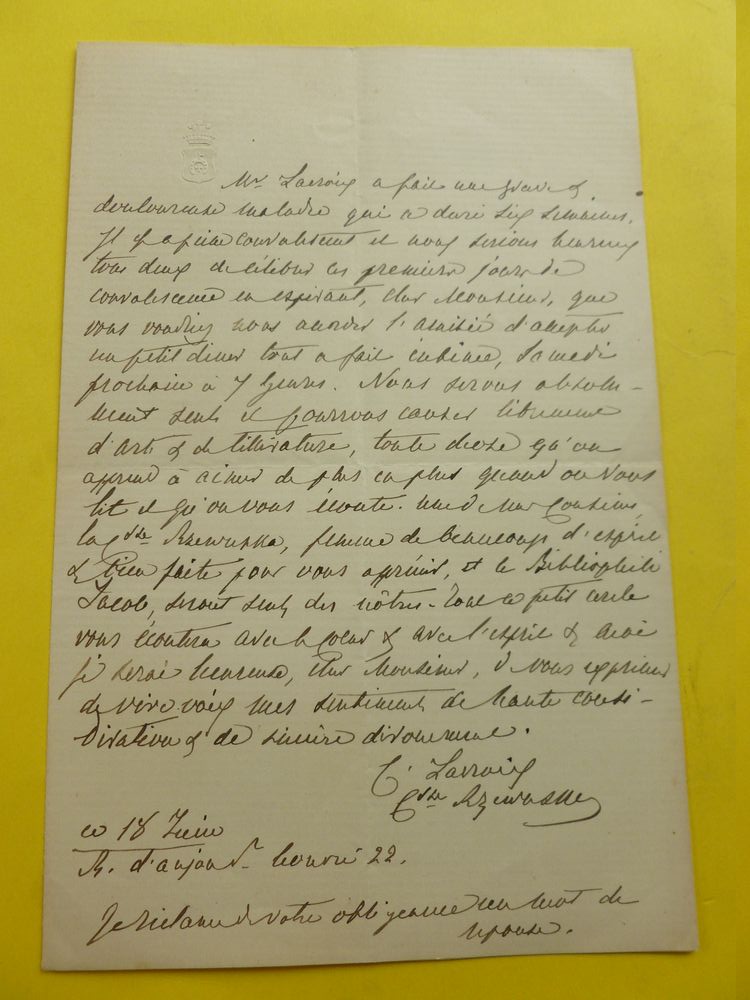 Mr Lacroix a fait une grave &
douloureuse maladie qui a duré six semaines.
Il est à peine convalescent et nous serions heureux
tous deux de célébrer ces premiers jours de
convalescence en espérant, cher Monsieur, que
vous voudrez nous accorder l'amitié d'accepter
un petit diner tout a fait intime, Samedi
prochain à 7 heures. Nous serons absolu-
ment seuls et pourrons causer librement
d'art & de littérature, toute chose qu'on
apprend à aimer de plus en plus quand on vous
lit et qu'on vous écoute. une de mes Cousines,
la Ctsse Rzewuska, femme de beaucoup d'esprit
& bien faite pour vous apprécier, et le Bibliophile
Jacob, seront seuls des nôtres. Tout ce petit cercle
vous écoutera avec le cœur & avec l'esprit & moi
je serai heureuse, cher Monsieur, de vous exprimer
de vive voix mes sentiments de haute consi-
dération & de sincère dévouement.
C. Lacroix
Ctsse Rzewuska
ce 18 Juin
R. d'anjou St honoré 22.
Je réclame de votre obligeance un mot de
réponse.